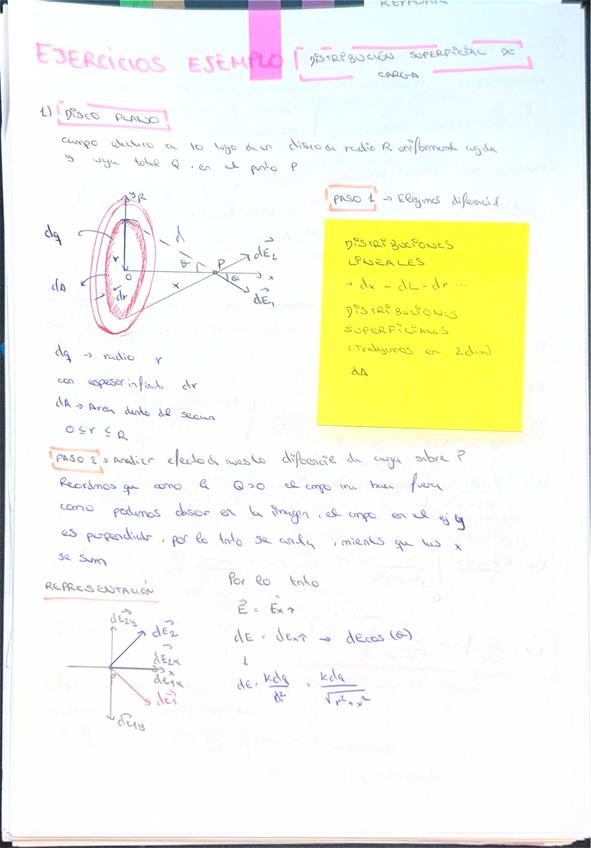 EJERCICIOS EJEMPLO DISTRIBUCIÓN SUPERFICIAL DE
CARGA
1) DISCO PLANO
campo electrico a lo lago de un disco de radio R uniformemente cargada
y cuya total Q. en el punto P
PASO 1 → Elegimos diferencial
DISTRIBUCIONES
LINEALES
→ dx - dL - dr ...
DISTRIBUCIONES
SUPERFICIALES
(Trabajamos en 2 dim)
dA
y R
dq
d
dE2
r
θ
P
θ
O
x
dA
dr
x
dE1
dq → radio r
con espesor infinito dr
dA → Area dentro del
0 ≤ r ≤ R
PASO 2 → Analizar efecto de nuestro diferencial de carga sobre P
Recordmos que como la Q>0 el campo ira hacia fuera
como podemos obser en la imagen, el campo en el eje y
es perpendiculr, por lo tnto se anula, mientrs que las x
se suman
REPRESENTACIÓN
Por lo tnto
dE2y
dE2
dE2x
x
dE1x
dE1
dE1y
E = Ex↑
dE = dEx↑ → dEcos(θ)
↓
dE = kdq/d² = kdq/√r²+x²